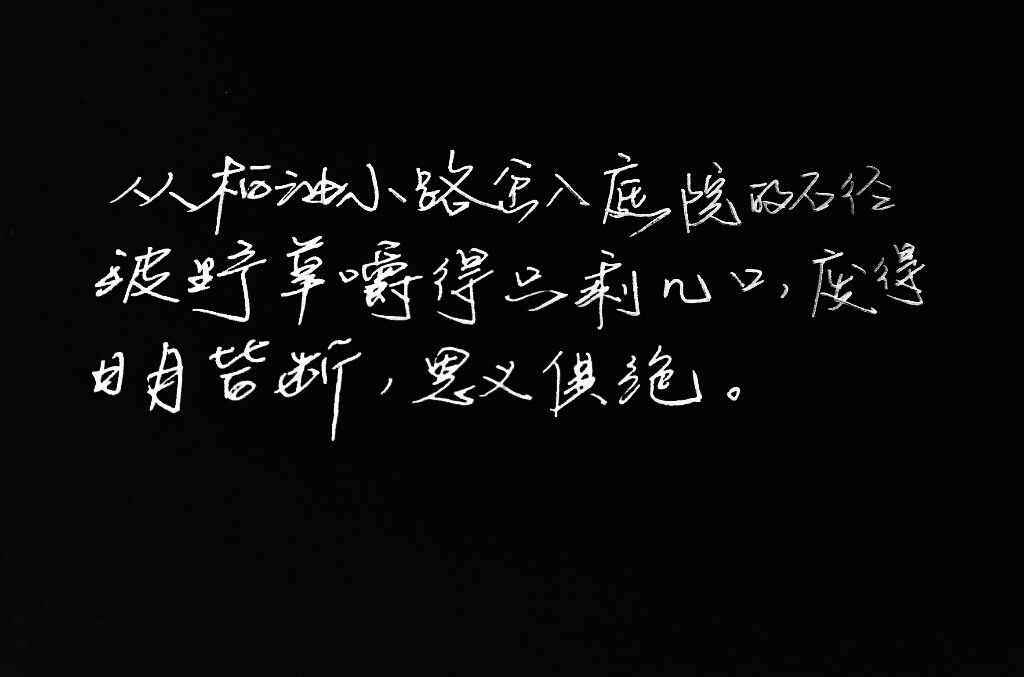 从柏油小路岔入庭院的石径
被野草嚼得只剩几口,废得
日月皆断,恩义俱绝。